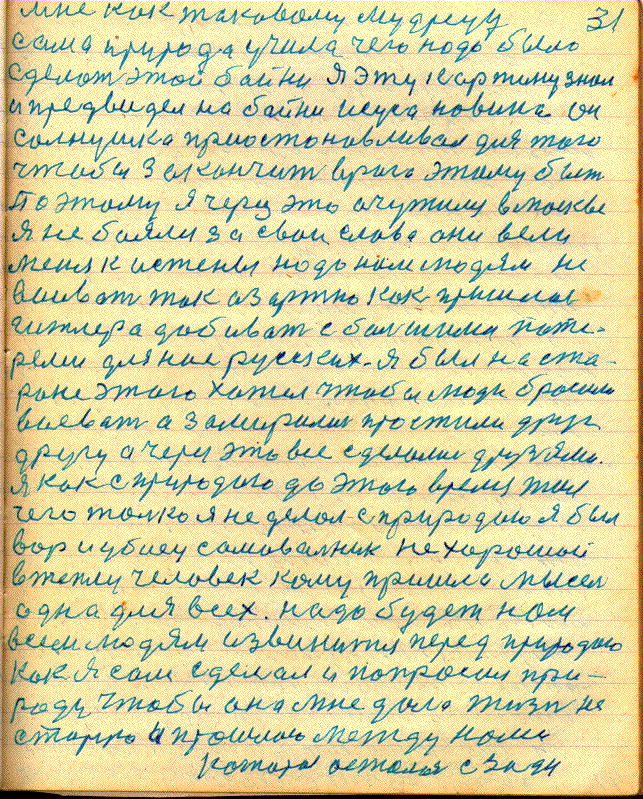 31
мне как таковому мудрецу
сама природа учила чего надо было
сделат этой байни я эту картину знал
и предвидел на байни исуса новина он
солнушка приостонавливал для того
чтобы закончит врага этому быт
Поэтому я через это очутилц в москве
я не бояли за свои слова они вели
меня к истены надо нам людям не
воеват так азартно как пришлос
гитлера добиват с болшими поте-
рями для нас русских. я был на ста-
роне этого хател чтобы люди бросили
воеват а замирилис простили друг
другу а через это все сделалис друзями.
я как с природаю до этого время жил
чего толко я не делал с природаю я был
вор и убиец самовалник не хороший
в жепзу человек кому пришла мысел
одна для всех. надо будет нам
всем людям извинится перед природаю
как я сам сделал и попросил при-
роду чтобы она мне дала жизн не
старую и прошлою между нами
катора осталас сзади